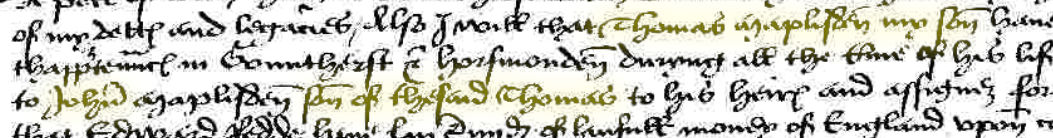 of my debtℯ and legacies, Also I will that Thomas Maplisden my son have
thapp'tenncℯ in Gowtherst & horsmonden during all the time of his lif
to John Maplisden son of the said Thomas to his heirℯ and assignez for
that Edward have of laufull money of England upon